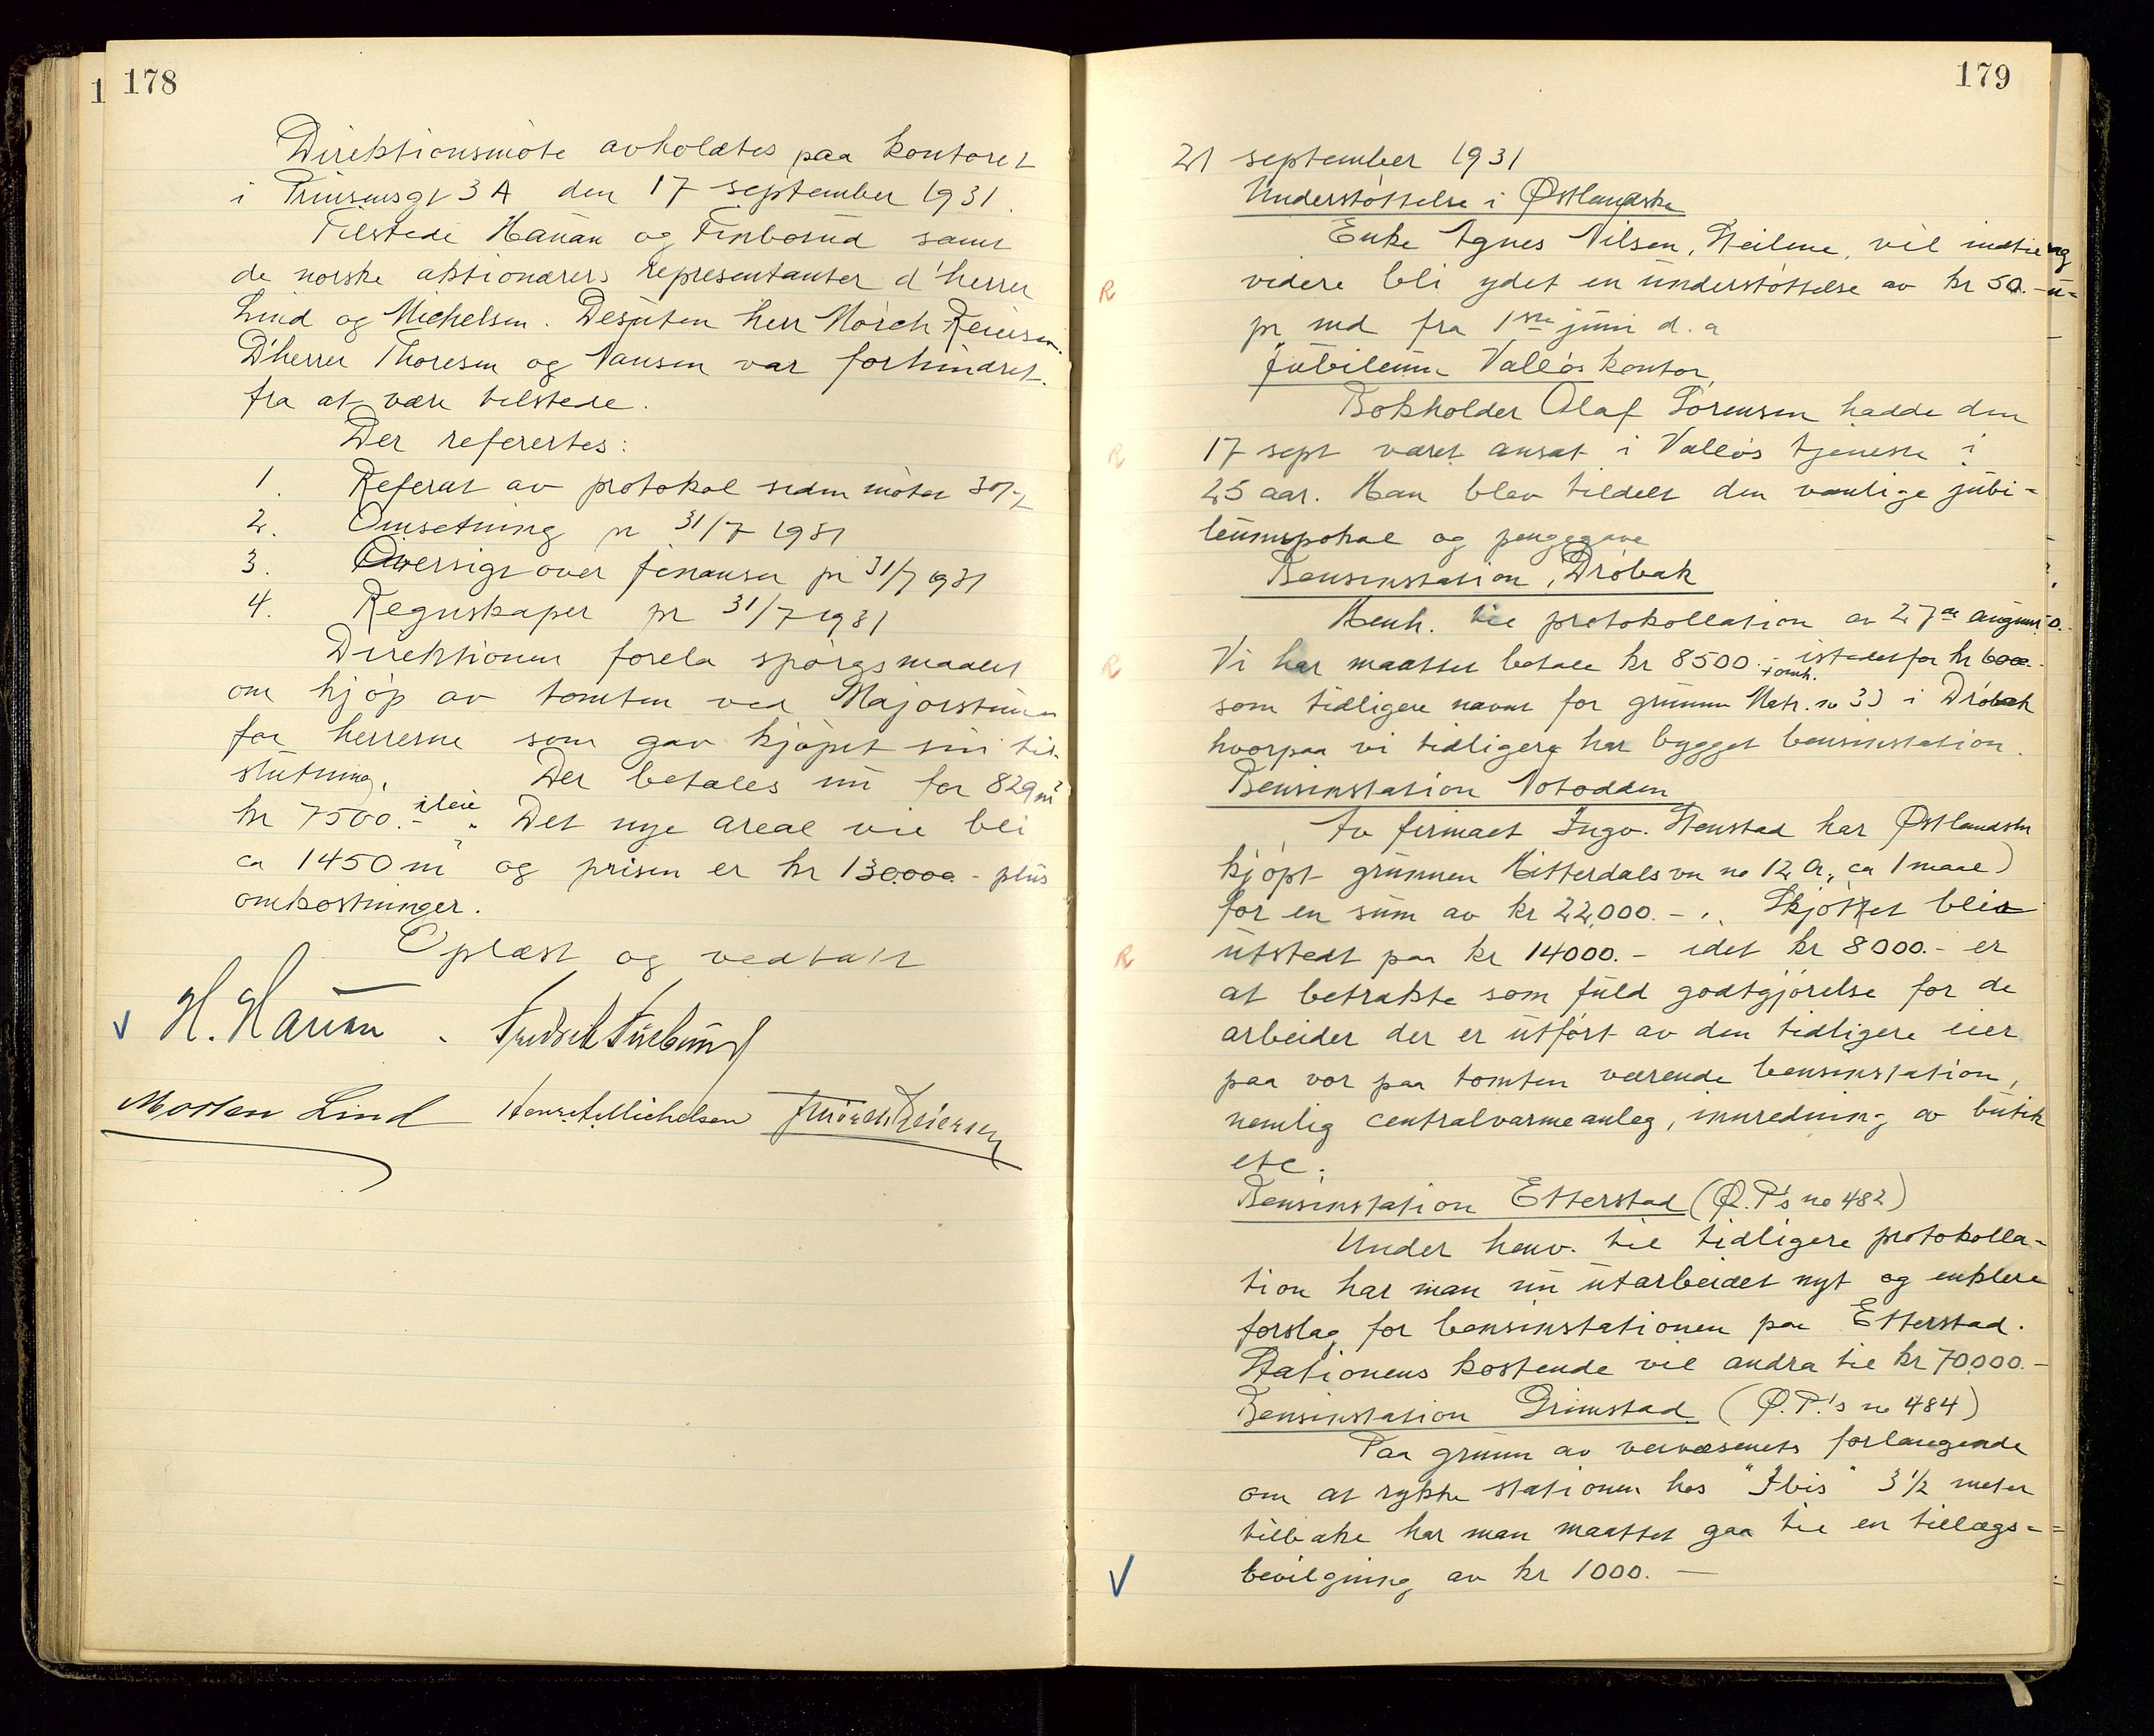 178
Direktionsmöte avholdtes paa kontoret
i Prinsensgt 3 A den 17 september 1931.
Tilstede Hauan og Finborud samt
de norske aktionærers representanter d'herrer
Lind og Michelsen. Desuten herr Mörch-Reiersen.
D'herrer Thoresen og Nansen var forhindret
fra at være tilstede.
Der referertes:
1. Referat av protokol siden mötet 30/7
2. Omsetning pr 31/7 1931
3. Oversigt over finanser pr 31/7 1931
4. Regnskaper pr 31/7 1931
Direktionen forela spörgsmaalet
om kjöp av tomten ved Majorstuen
for herrerne som gav kjöpet sin til-
slutning. Der betales nu for 829 m²
kr 7500.- i leie. Det nye areal vil bli
ca 1450 m² og prisen er kr 130.000.- plus
omkostninger.
Oplæst og vedtatt
H. Hauan.
Morten Lind Michelsen Mörch Reiersen
179
21 september 1931
Understöttelse i Östlandske
Enke Agnes Nilsen, Steilene, vil indtil
videre bli ydet en understöttelse av kr 50.-
pr md fra 1ste juni d.a
Jubileum Vallös kontor
Bokholder Olaf Sörensen hadde den
17 sept været ansat i Vallös tjeneste i
25 aar. Han blev tildelt den vanlige jubi-
leumspokal og pengegave
Bensinstation, Dröbak
Henh. til protokollation av 27de august
Vi har maattet betale kr 8500.- + omk. istedetfor kr 6000.-
som tidligere nævnt for grunnen Matr. no 33 i Dröbak
hvorpaa vi tidligere har bygget bensinstation.
Bensinstation Notodden
Av firmaet Ingv. Stenstad har Östlandske
kjöpt grunnen Hitterdalsvn no 12 a, ca 1 maal)
for en sum av kr 22,000.-. Skjötet blir
utstedt paa kr 14000.- idet kr 8000.- er
at betrakte som fuld godtgjörelse for de
arbeider der er utfört av den tidligere eier
paa vor paa tomten værende bensinstation,
nemlig centralvarmeanleg, innredning av butik
etc.
Bensinstation Etterstad (Ø.P.'s no 482)
Under henv. til tidligere protokolla-
tion har man nu utarbeidet nyt og enklere
forslag for bensinstationen paa Etterstad.
Stationens kostende vil andra til kr 70000.-
Bensinstation Grimstad (Ø.P.'s no 484)
Paa grunn av veivæsenets forlangende
om at rykke stationen hos "Ibis" 3 1/2 meter
tilbake har man maattet gaa til en tillægs-
bevilgning av kr 1000.-